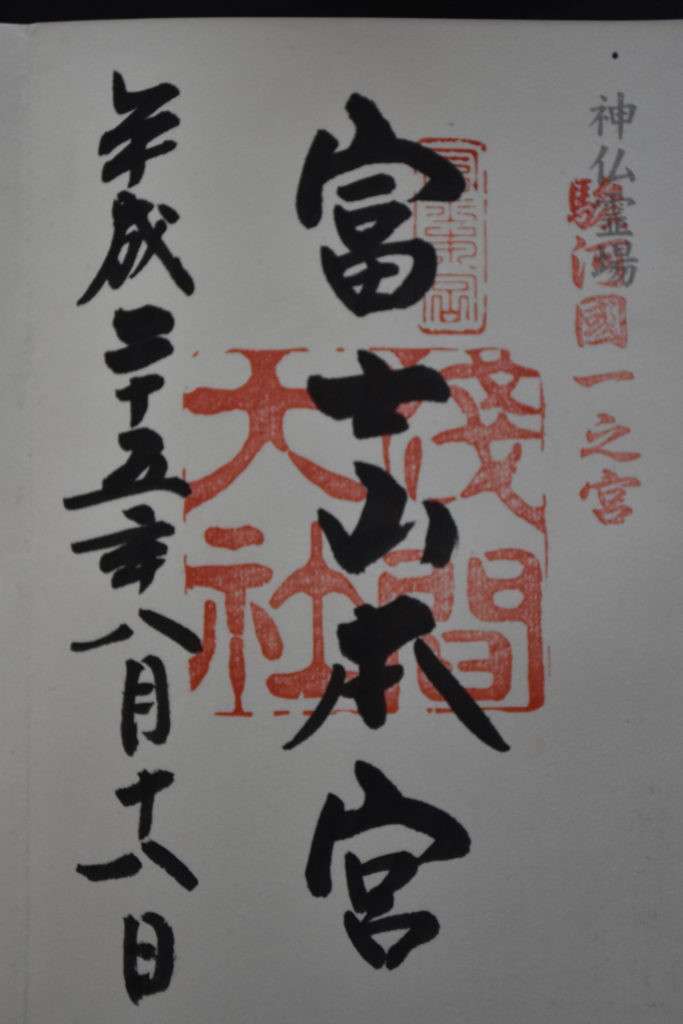 神仏霊場
駿河國一之宮
富士山本宮
淺間
大社
平成二十五年八月十八日